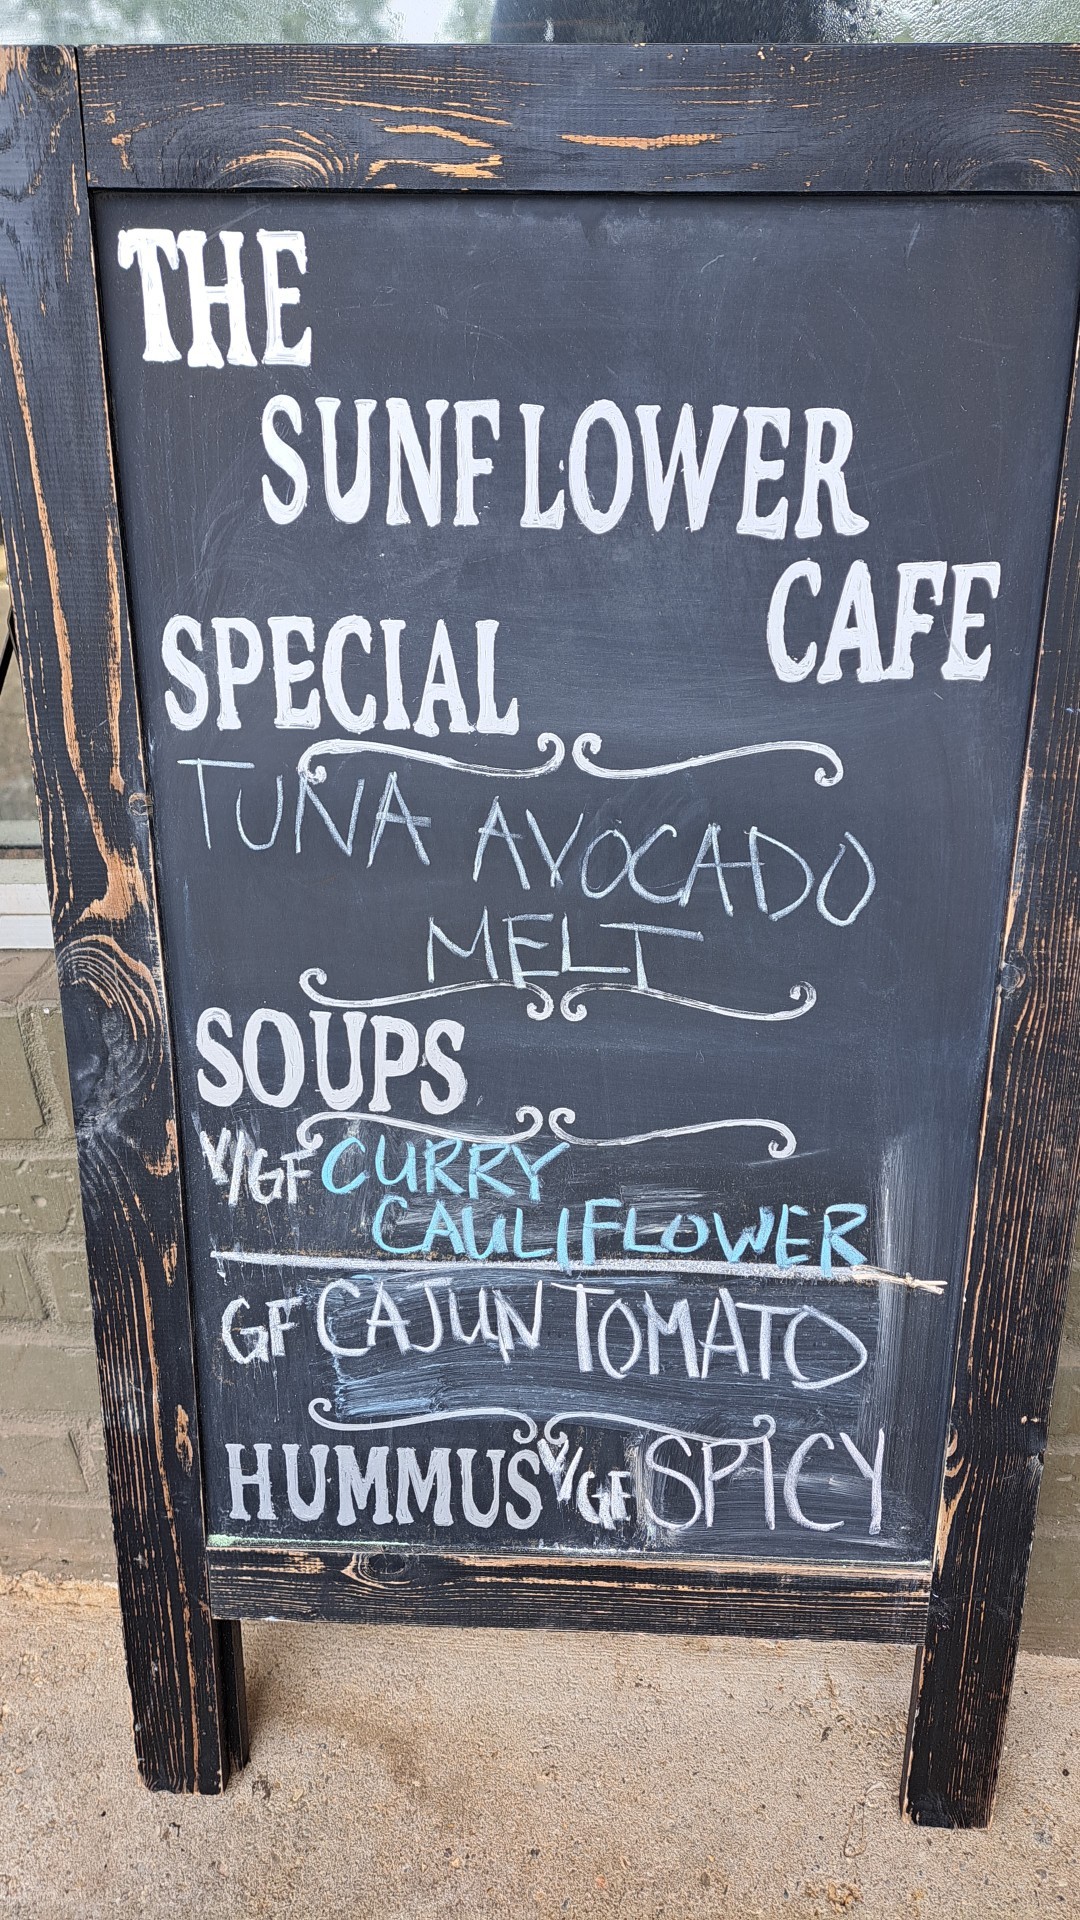 THE
SUNFLOWER
CAFE
SPECIAL
TUNA AVOCADO
MELT
SOUPS
V/GF CURRY
CAULIFLOWER
GF CAJUN TOMATO
HUMMUS V/GF SPICY